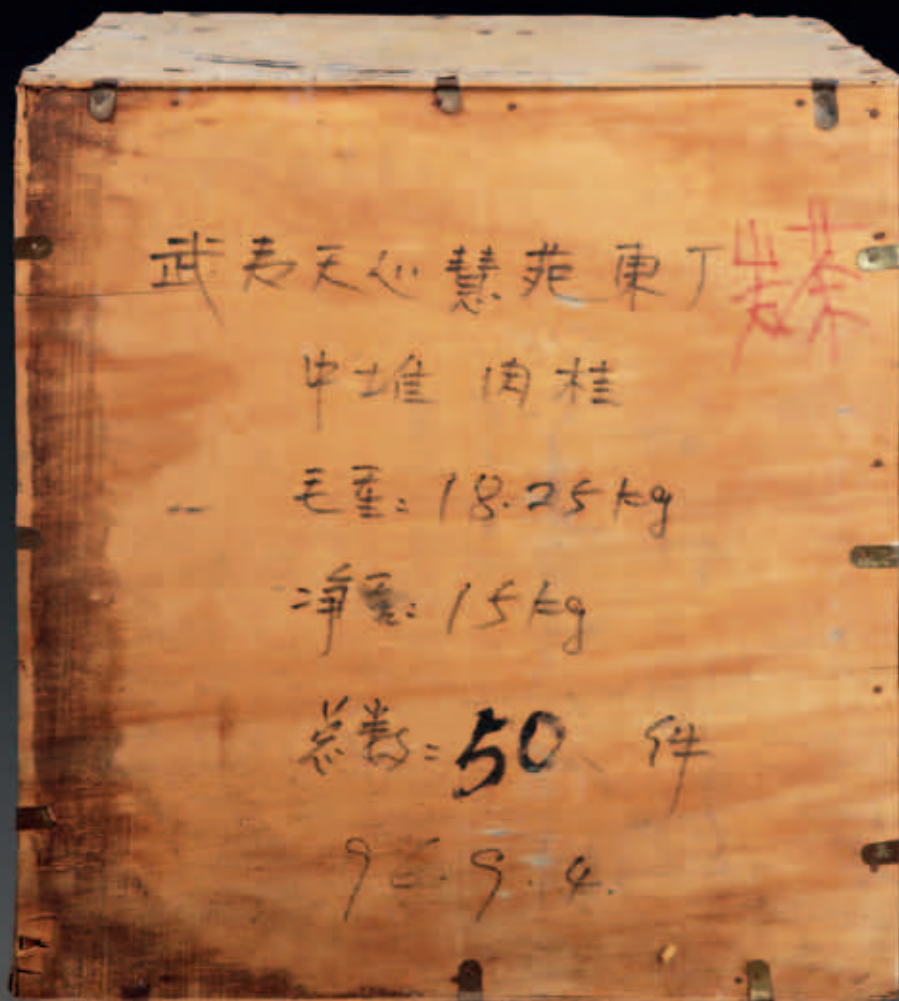 武夷天心慧苑東丁
岩茶
中堆 肉桂
毛重: 18.25kg
净重: 15kg
总数: 50、件